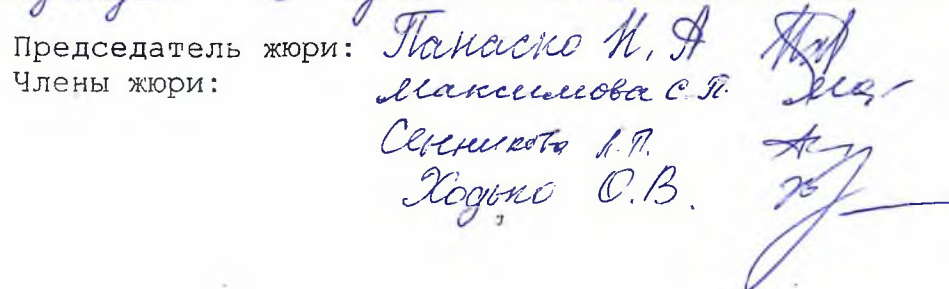 Председатель жюри: Панаско Н. А
Члены жюри: Максимова С. П.
Сенникова Л. П.
Ходько О. В.